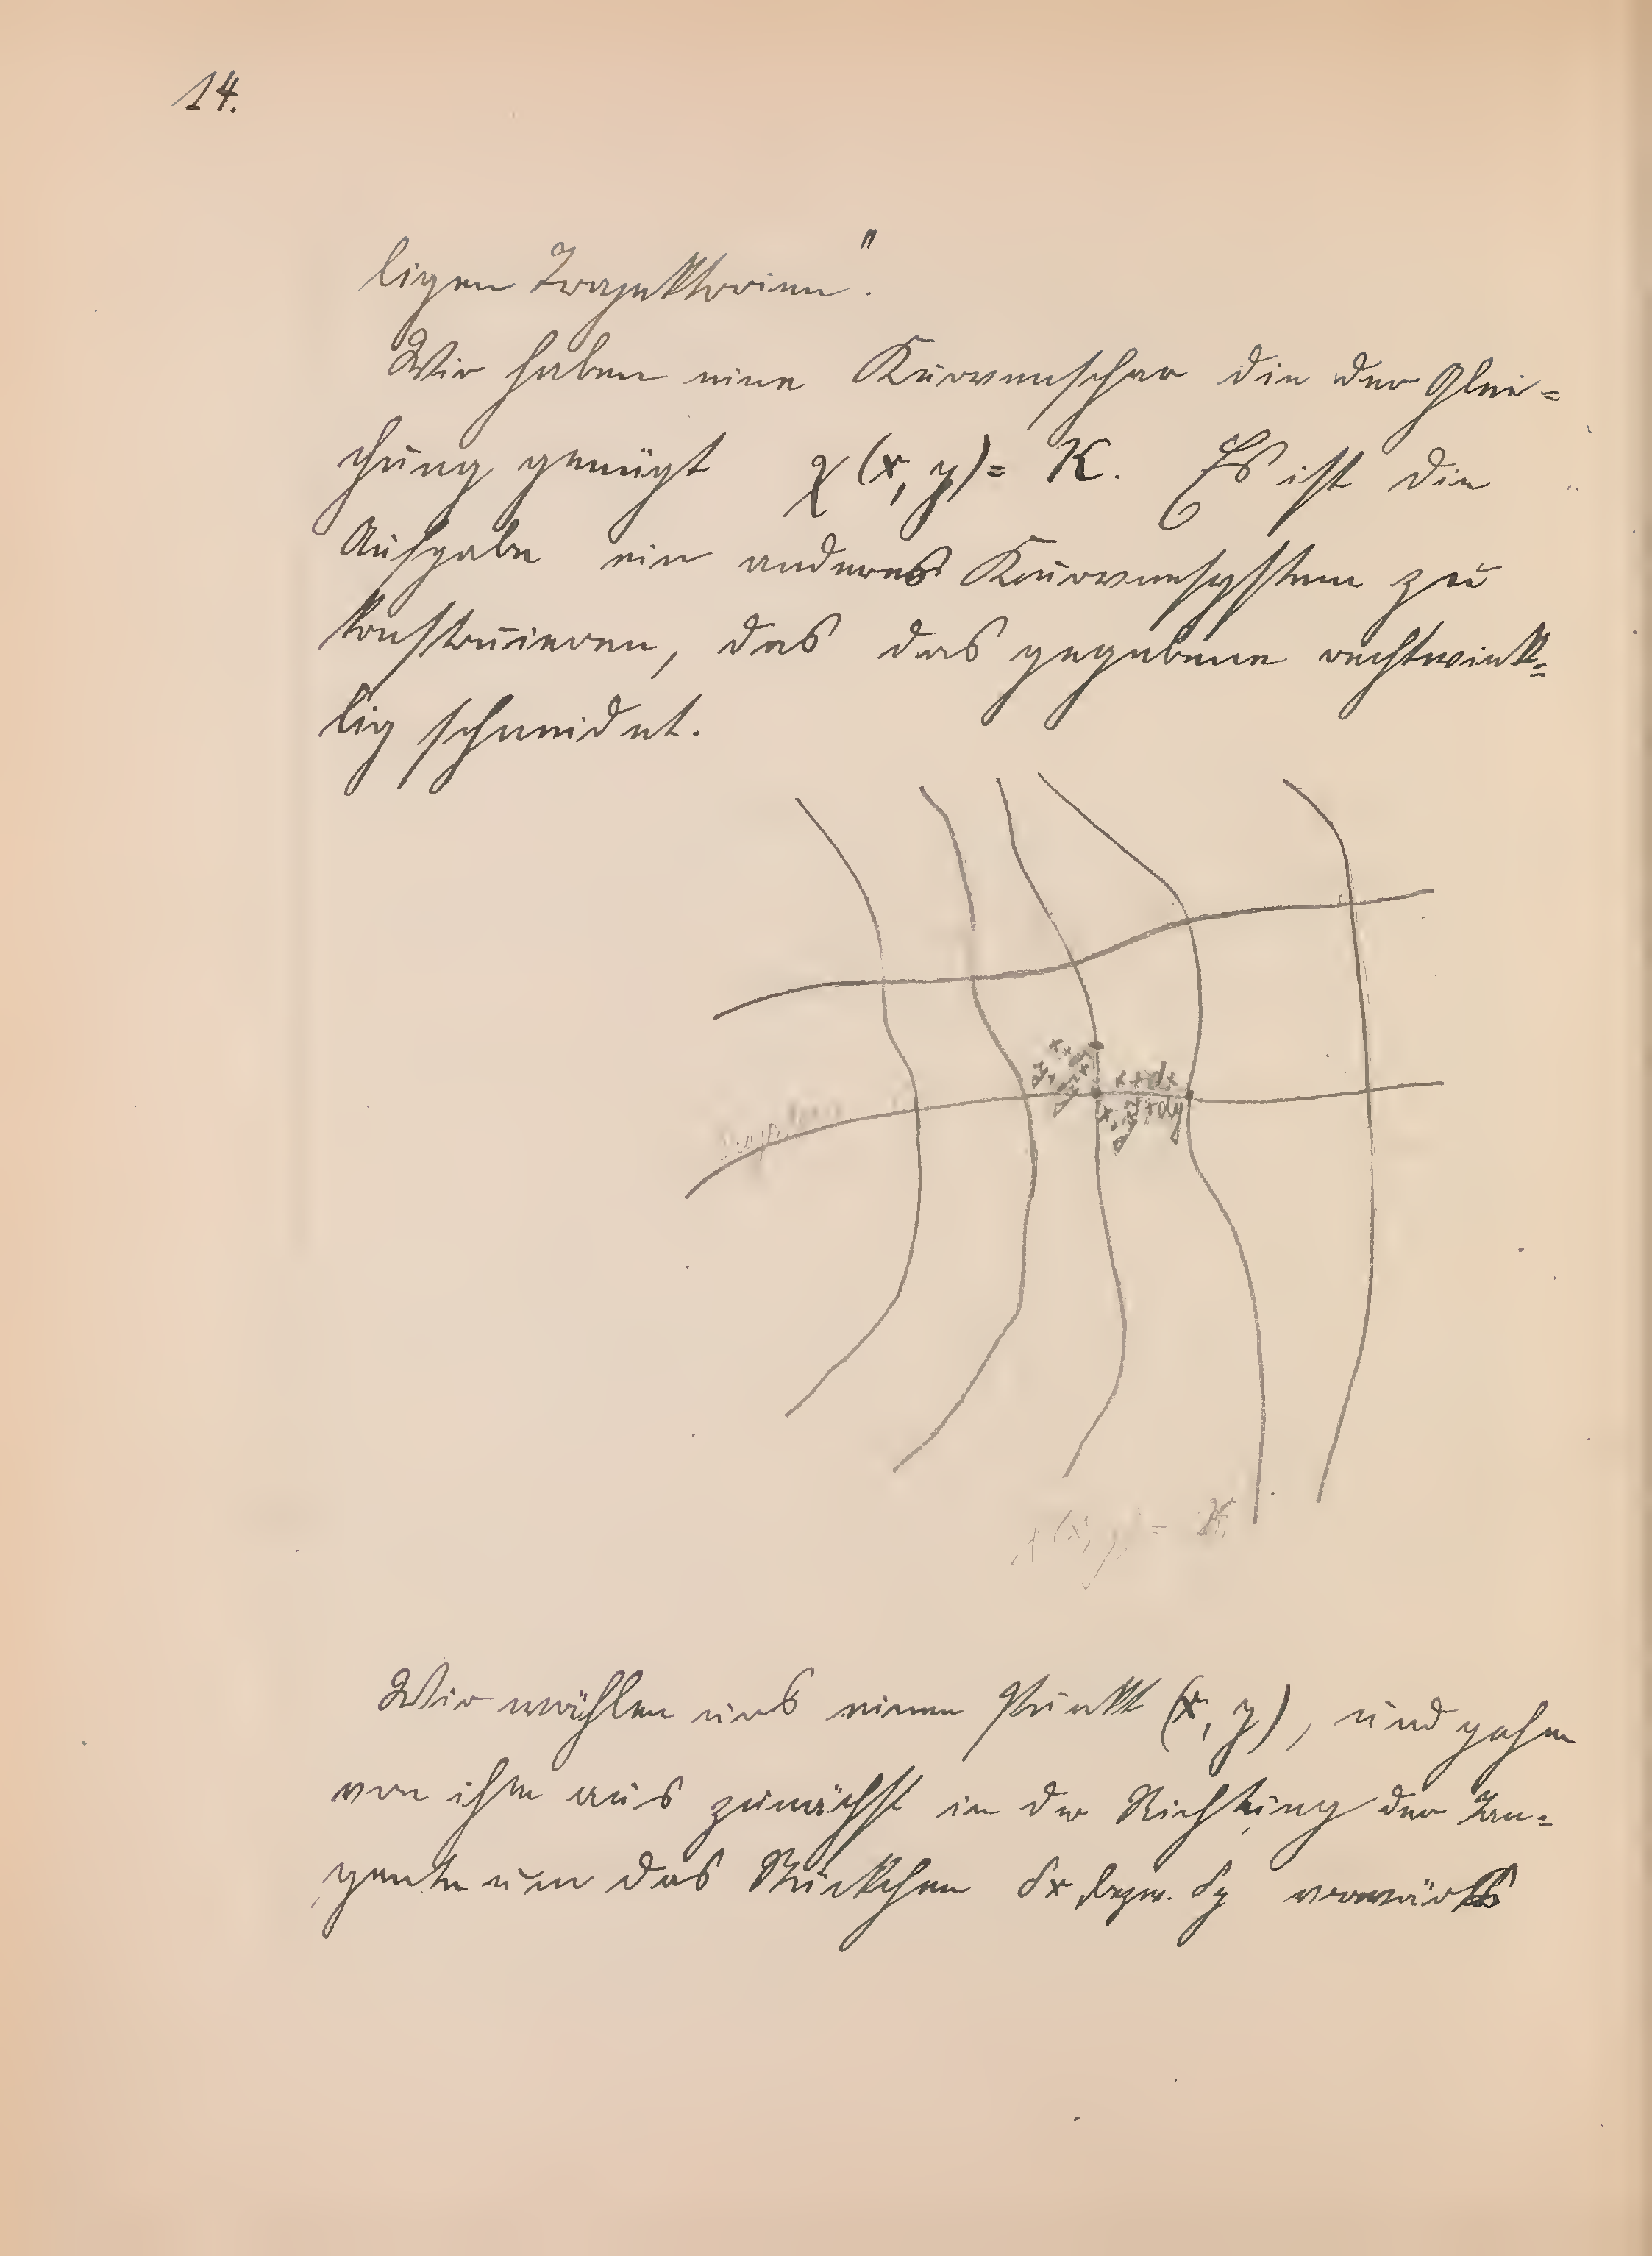 14.
ligen Trajektorien".
Wir haben eine Kurvenschar die der Glei=
chung genügt χ(x, y) = K. Es ist die
Aufgabe ein anderes Kurvensystem zu
konstruieren, das das gegebene rechtwink=
lig schneidet.
x+δx
y+δy
x+dx
x, y
y+dy
χ(x, y) = K
Wir wählen uns einen Punkt (x, y), und gehen
von ihm aus zunächst in der Richtung der Tan=
gente um das Stückchen δx bezw. δy vorwärts